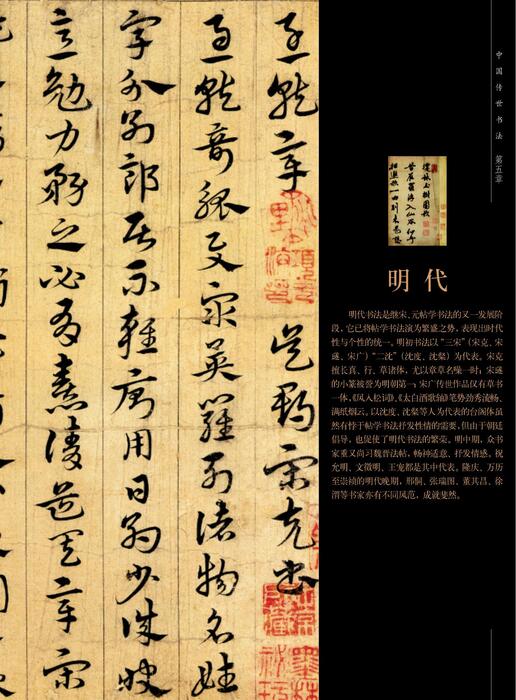 中国传世书法 第五章
明代
明代书法是继宋、元帖学书法的又一发展阶
段，它已将帖学书法演为繁盛之势，表现出时代
性与个性的统一。明初书法以“三宋”（宋克、宋
璲、宋广）“二沈”（沈度、沈粲）为代表。宋克
擅长真、行、草诸体，尤以章草名噪一时；宋璲
的小篆被誉为明朝第一；宋广传世作品仅有草书
一体，《风入松词》、《太白酒歌轴》笔势劲秀流畅、
满纸烟云。以沈度、沈粲等人为代表的台阁体虽
然有悖于帖学书法抒发性情的需要，但由于朝廷
倡导，也促使了明代书法的繁荣。明中期，众书
家重又尚习魏晋法帖，畅神适意、抒发情感。祝
允明、文徵明、王宠都是其中代表。隆庆、万历
至崇祯的明代晚期，邢侗、张瑞图、董其昌、徐
渭等书家亦有不同风范，成就斐然。
急就章 吳郡宋克書
急就奇觚與衆異羅列諸物名姓
字分別部居不雜廁用日約少誠快
意勉力務之必有憙請道其章宋